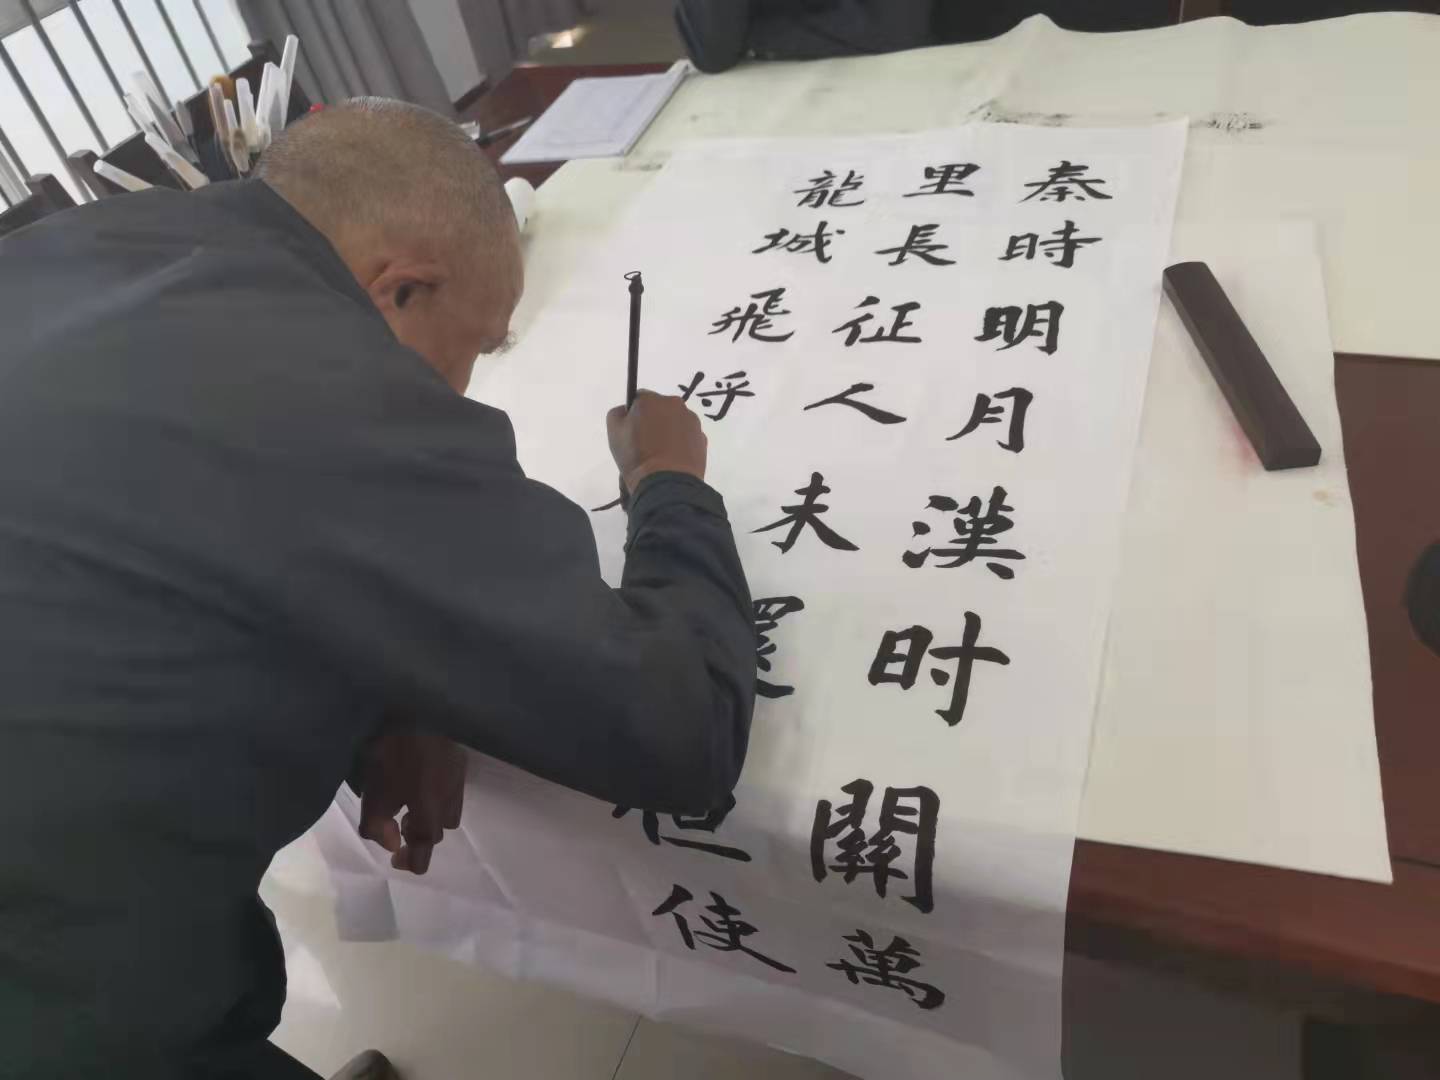 秦時明月漢时關萬
里長征人未還但使
龍城飛将